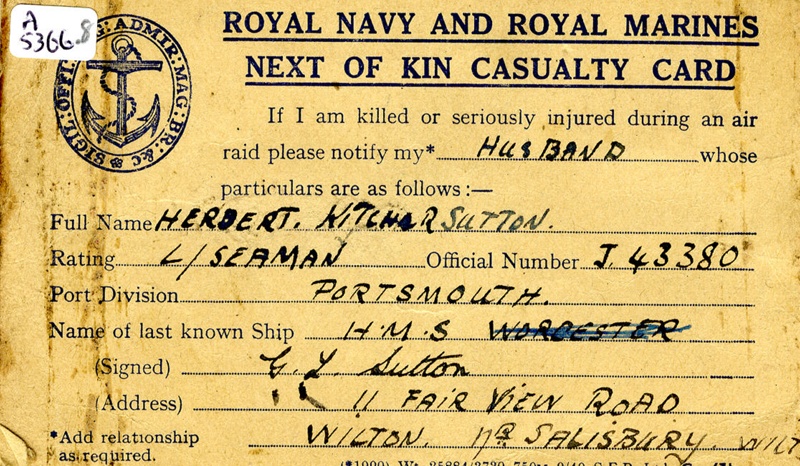 A
5366.8
SIGIL:OFFI G:ADMIR:MAG:BR:&c
ROYAL NAVY AND ROYAL MARINES
NEXT OF KIN CASUALTY CARD
If I am killed or seriously injured during an air
raid please notify my* HUSBAND whose
particulars are as follows :—
Full Name HERBERT. SUTTON.
Rating L/SEAMAN Official Number J. 43380
Port Division PORTSMOUTH.
Name of last known Ship H.M.S WORCESTER
(Signed) Sutton
(Address) 11 FAIR VIEW ROAD
*Add relationship WILTON. NR SALISBURY. WILT
as required.